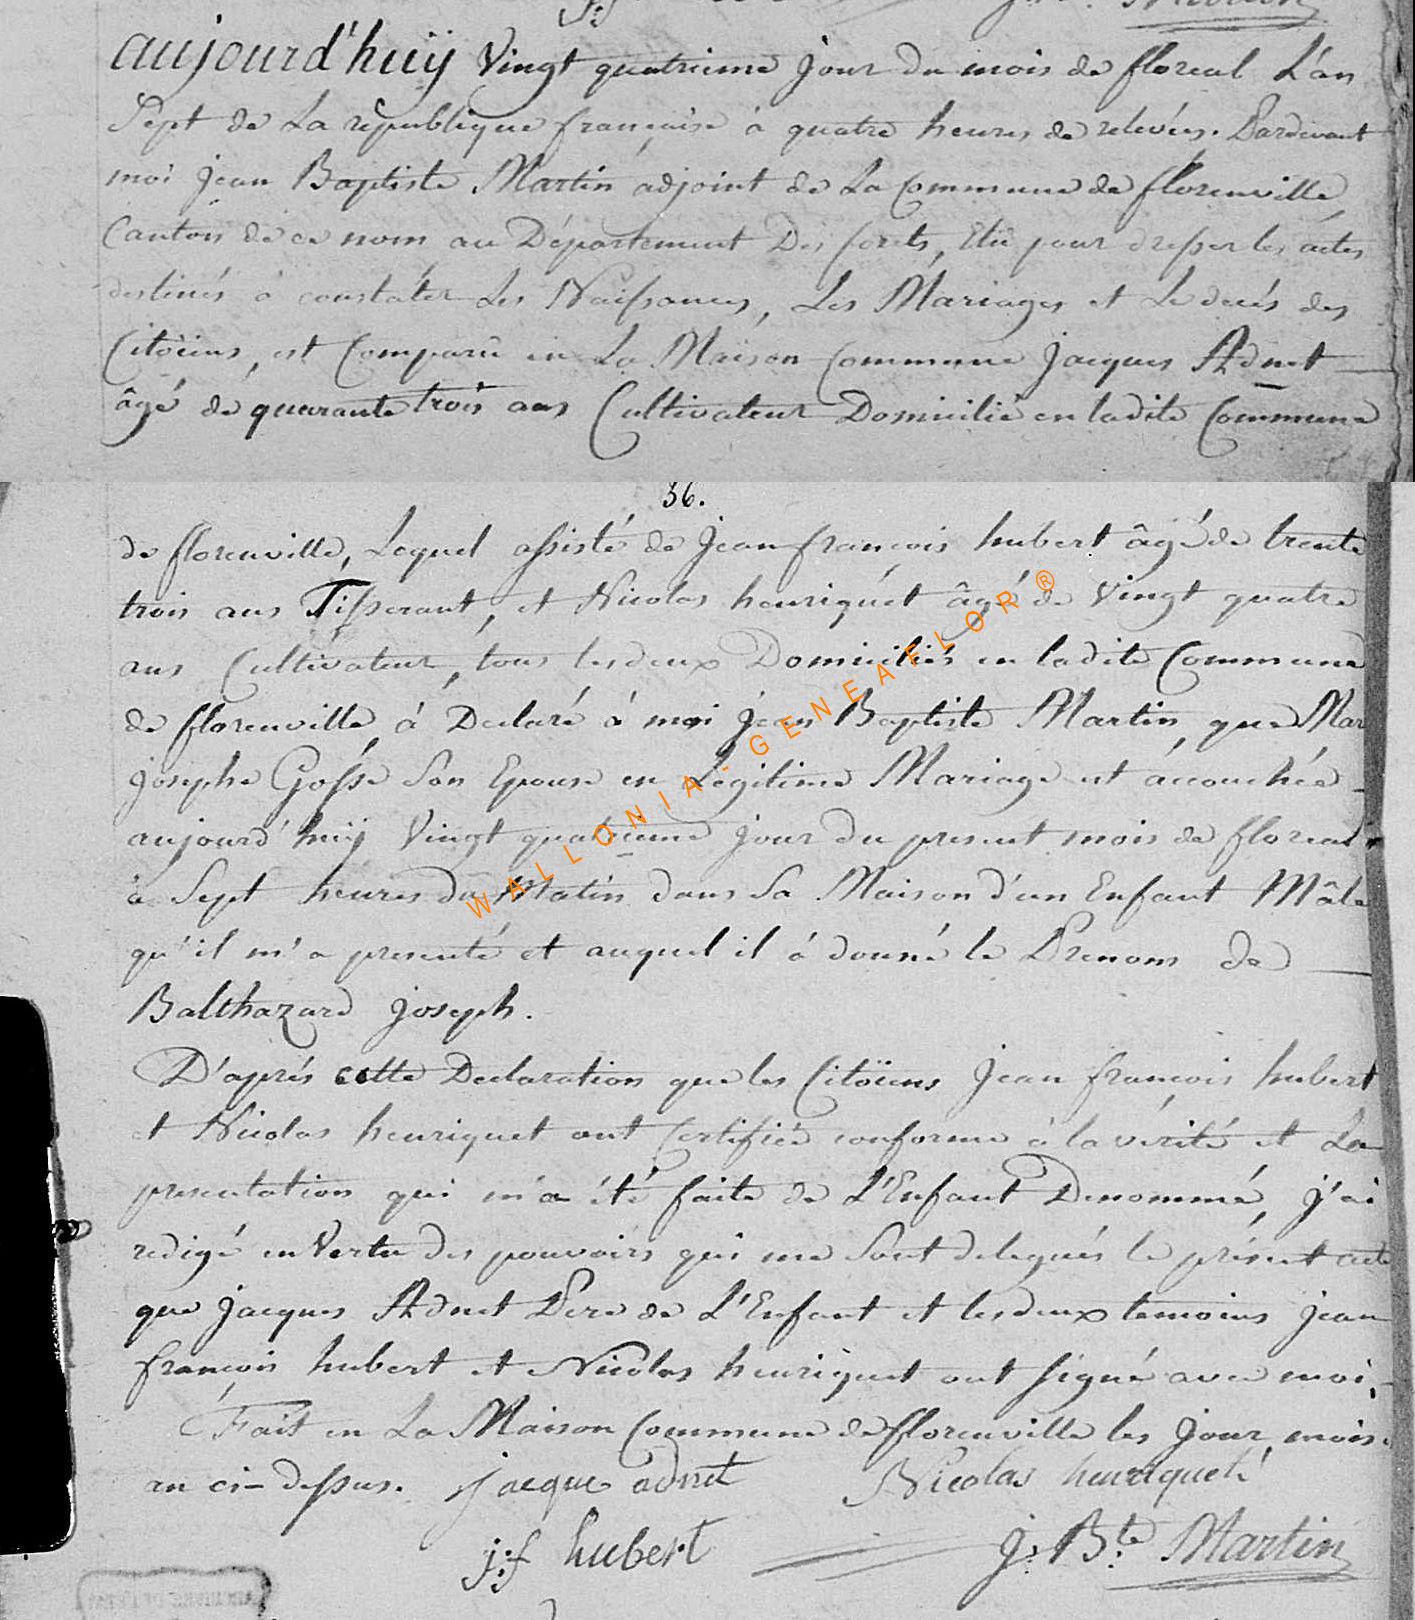 aujourd'huÿ Vingt quatrieme Jour du mois de floreal L'an
Sept de La republique française à quatre heures de relevées. Pardevant
moi Jean Baptiste Martin adjoint de La Commune de florenville
Canton de ce nom au Département Des forets, Elu pour dresser les actes
destinés à constater Les Naissances, Les Mariages et Le decés des
Citoïens, est Comparu en La Maison Commune Jacques Adnet
âgé de quarante trois ans Cultivateur Domicilié en ladite Commune
36.
de florenville, Lequel assisté de Jean françois hubert âgé de trente
trois ans Tisserant, et Nicolas henriquet âgé de Vingt quatre
ans Cultivateur, tous lesdeux Domiciliés en ladite Commune
de florenville, à Declaré à moi Jean Baptiste Martin, que Mar
Josephe Gosse Son Epouse en Légitime Mariage est accouchée
aujourd'huÿ Vingt quatrieme jour du present mois de floreal
à Sept heures du Matin dans Sa Maison d'un Enfant Mâle
qu'il m'a presenté et auquel il à donné le Prenom de
Balthazard Joseph.
D'aprés cette Declaration que les Citoïens Jean françois hubert
et Nicolas henriquet ont Certifiée conforme à la vérité et La
presentation qui m'a été faite de L'Enfant Denommé, J'ai
redigé en Vertu des pouvoirs qui me Sont delegués le présent acte
que Jacques Adnet Pere de L'Enfant et lesdeux temoins Jean
françois hubert et Nicolas henriquet ont signé avec moi,
Fait en La Maison Commune de florenville les Jour, mois
an ci-dessus. jacque adnet Nicolas henriquet
j:f hubert J. B.te Martin
WALLONIA-GENEAFLOR®